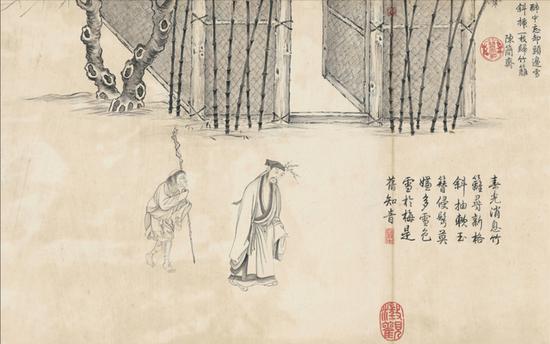 醉中忘却頭邊雪
斜插一枝歸竹籬
陳簡齋
春光消息竹
籬尋新格
斜抽軟玉
簪侵鬢莫
嫌多雪色
雪於梅是
舊知音
澂觀